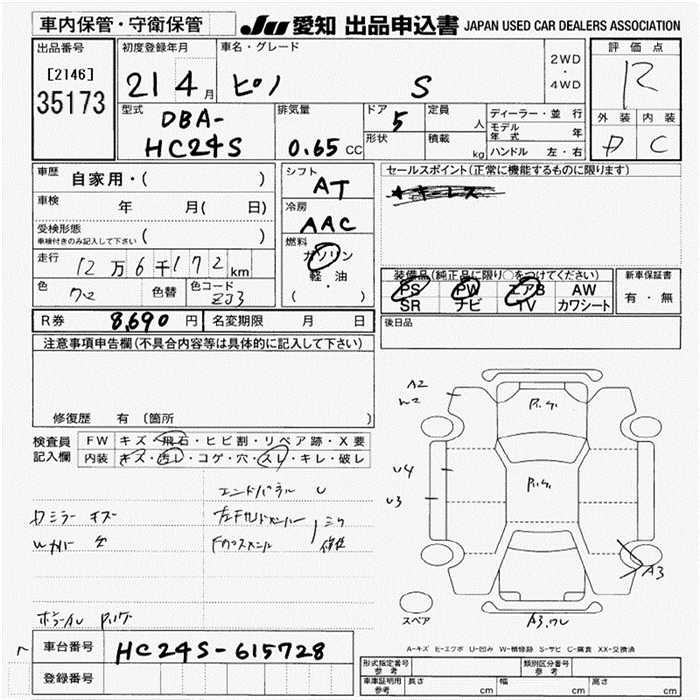 車内保管・守衛保管
JU 愛知 出品申込書 JAPAN USED CAR DEALERS ASSOCIATION
出品番号
[2146]
35173
初度登録年月
21 4 月
車名・グレード
ピノ S
2WD
・
4WD
評価点
R
外装 内装
D C
型式
DBA-
HC24S
排気量
0.65 CC
ドア
5
形状
定員
人
積載
kg
ディーラー・並行
モデル年式 年
ハンドル 左・右
車歴
自家用・( )
車検
年 月( 日)
受検形態
車検付きのみ記入して下さい ( )
走行
12万6千172 km
色
色替
色コード
ZJ3
シフト
AT
冷房
AAC
燃料
ガソリン
軽・油
( )
セールスポイント(正常に機能するものに限ります)
★キーレス
装備品(純正品に限り○をつけてください)
PS PW エアB AW
SR ナビ TV カワシート
新車保証書
有・無
後日品
R券 8,690 円
名変期限 月 日
注意事項申告欄(不具合内容等は具体的に記入して下さい)
修復歴 有 (箇所 )
検査員
記入欄
FW キズ・飛石・ヒビ割・リペア跡・X要
内装 キズ・汚レ・コゲ・穴・スレ・キレ・破レ
A2
W2
U4
U3
A3
スペア
A-キズ E-エクボ U-凹み W-補修跡 S-サビ C-腐食 XX-交換済
車台番号 HC24S-615728
登録番号
形式指定番号
参考
類別区分番号
参考
車庫証明用
参考
長さ cm
幅 cm
高さ cm